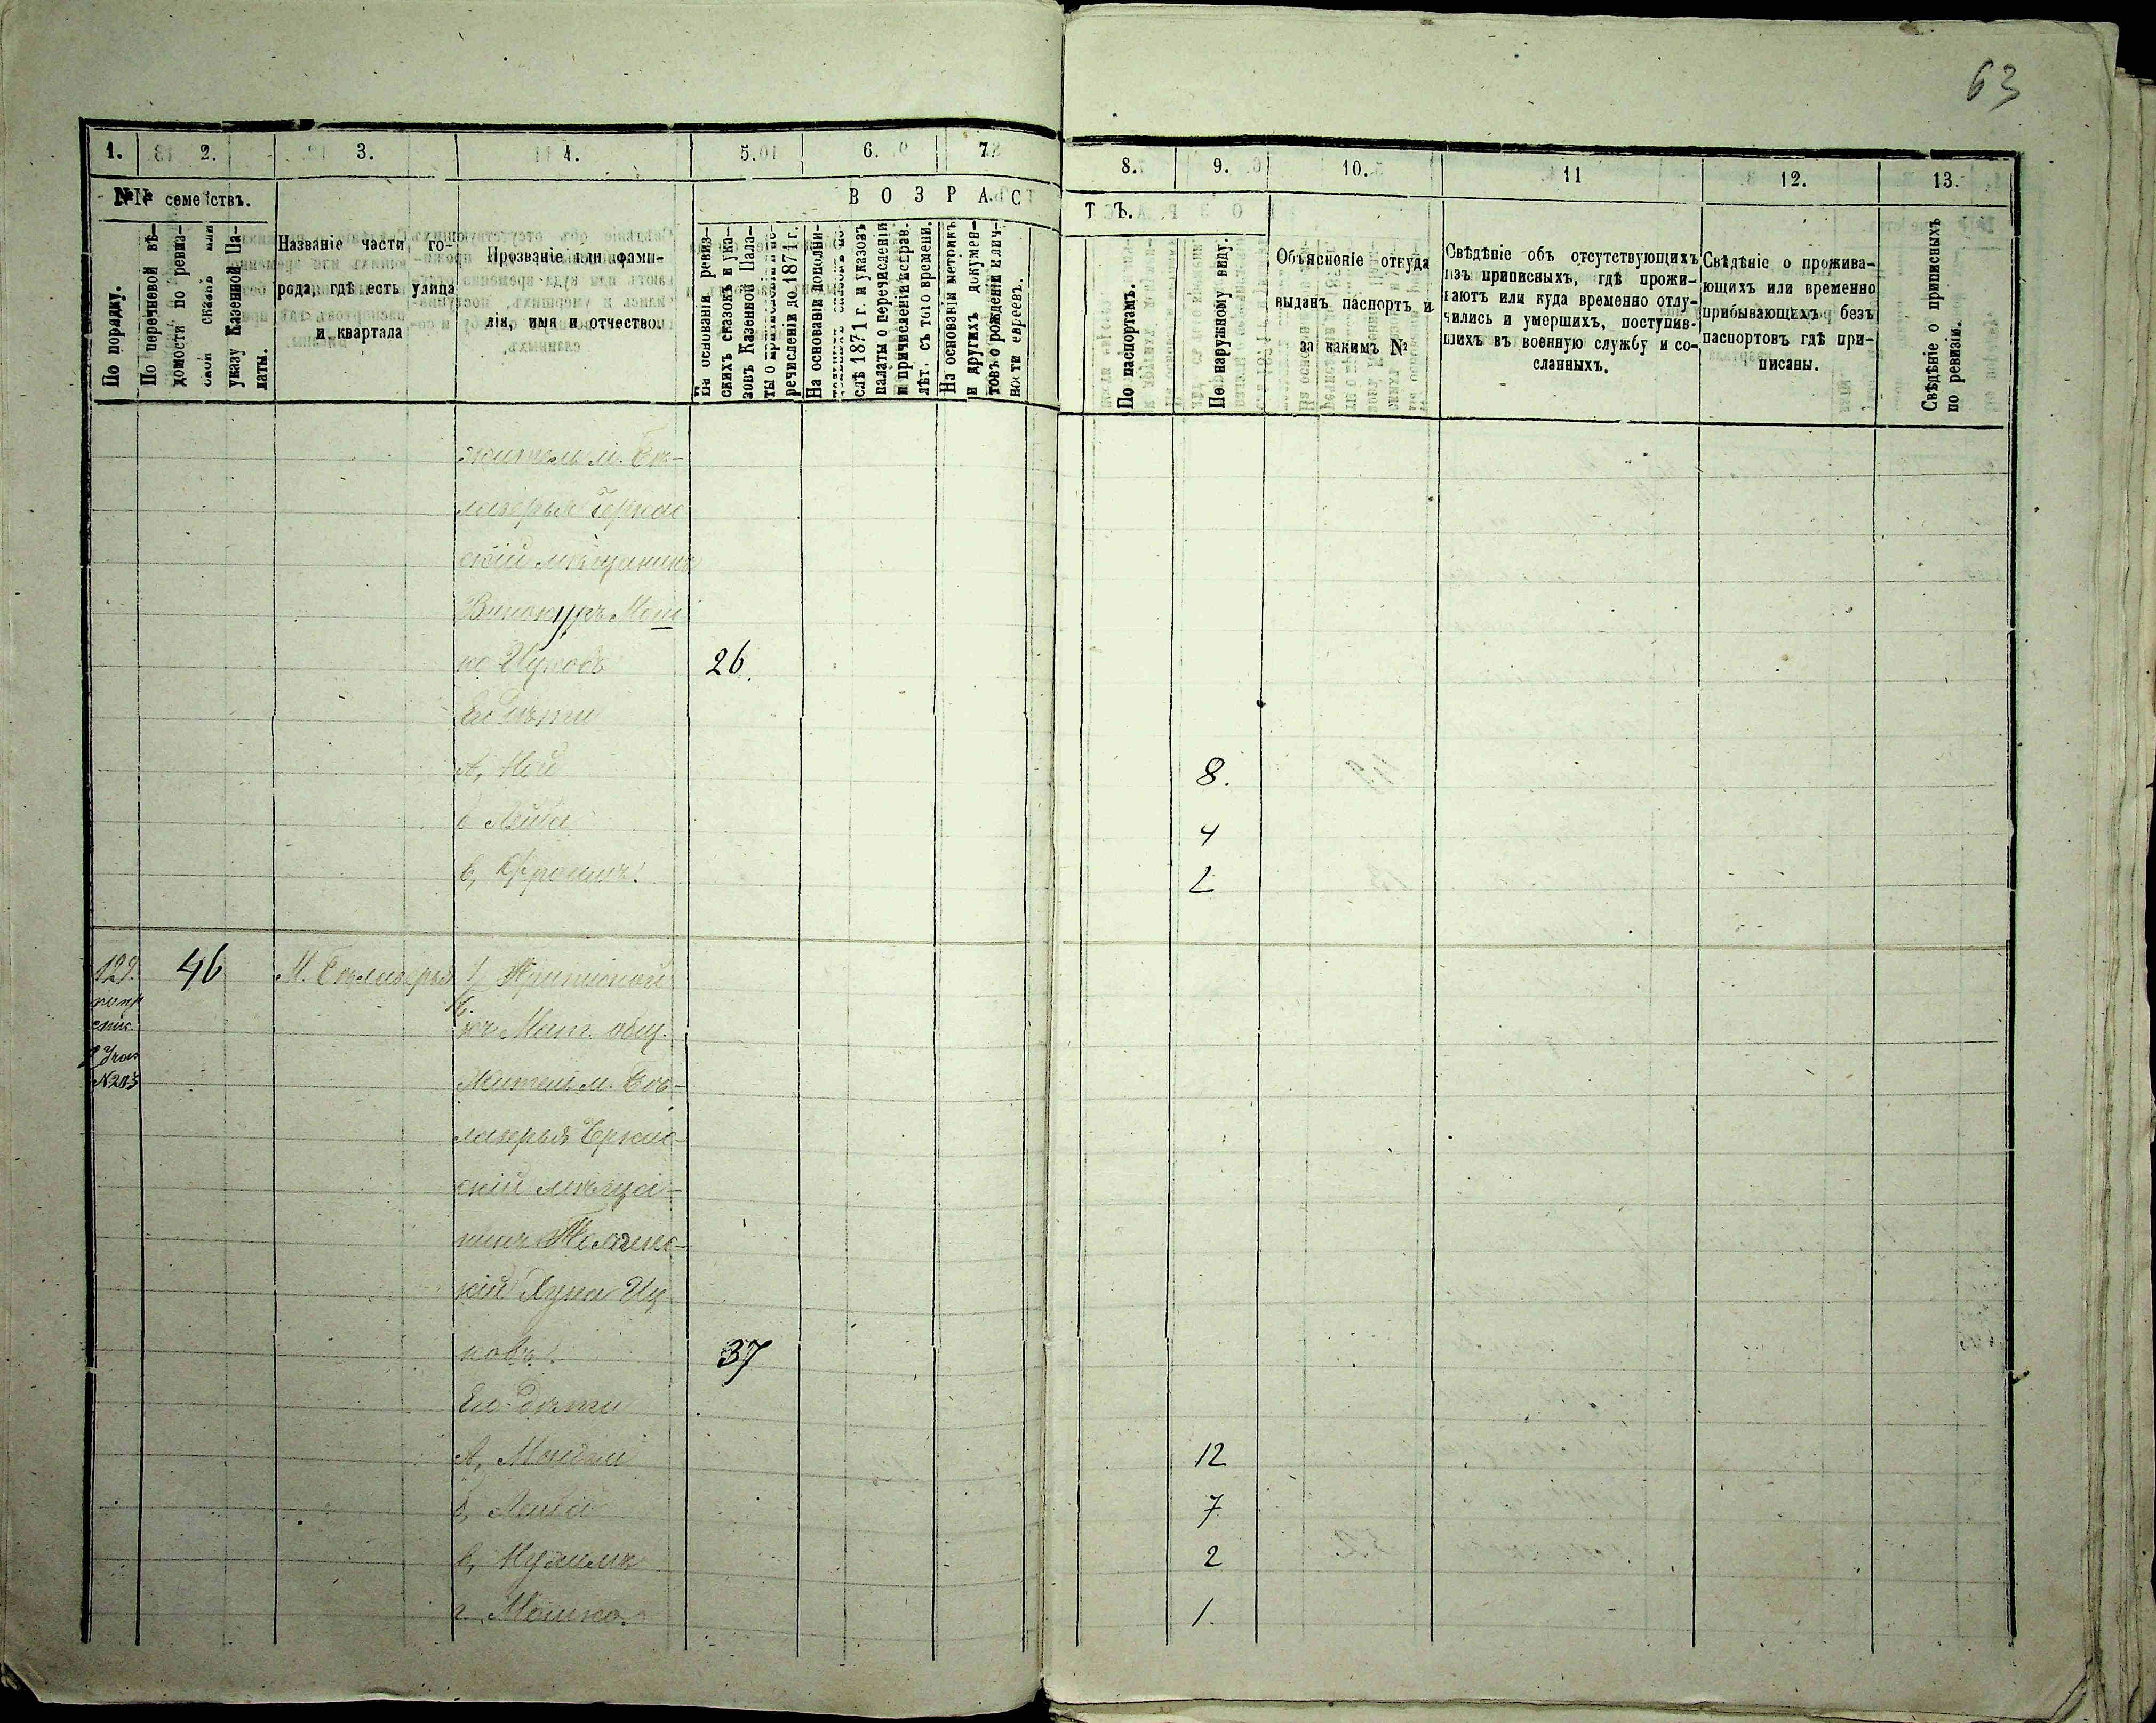 63
1. 2. 3. 4. 5. 6. 7. 8. 9. 10. 11 12. 13.
№№ семействъ.
В О З Р А С Т Ъ.
По порядку.
По перечневой вѣ-
домости по ревиз-
ской сказкѣ или
указу Казенной Па-
латы.
Названіе части го-
рода, гдѣ есть улица
и квартала
Прозваніе или фами-
лія, имя и отчество
На основаніи ревиз-
скихъ сказокъ и ука-
зовъ Казенной Пала-
ты о
речисленіи до 1871 г.
На основаніи дополни-
слѣ 1871 г. и указовъ
палаты о перечисленіи
и причисленіи исправ.
лѣт. съ того времени.
На основаніи метрикъ
и другихъ докумен-
товъ о рожденіи и лич-
ности евреевъ.
По паспортамъ.
По наружному виду.
Объясненіе откуда
выданъ паспортъ и
за какимъ №
Свѣдѣніе объ отсутствующихъ
изъ приписныхъ, гдѣ прожи-
ваютъ или куда временно отлу-
чились и умершихъ, поступив-
шихъ въ военную службу и со-
сланныхъ.
Свѣдѣніе о прожива-
ющихъ или временно
прибывающихъ безъ
паспортовъ гдѣ при-
писаны.
Свѣдѣніе о приписныхъ
по ревизіи.
житель м. Бѣ-
лозерья Черкас
скій мѣщанинъ
Винокуръ Мош
ко Ицковъ 26.
Его дѣти
А, Ной 8.
б Лейба 4
в, Фроимъ 2
129. 46 М. Бѣлозерья 1, Приписной
къ общ.
№203 Житель м. Бѣ-
лозерья Черкас-
скій мѣща-
нинъ
кій Иц
ковъ. 37
Его дѣти
А, 12
б, Лейба 7
в, Нухимъ 2
г, Мошко. 1.